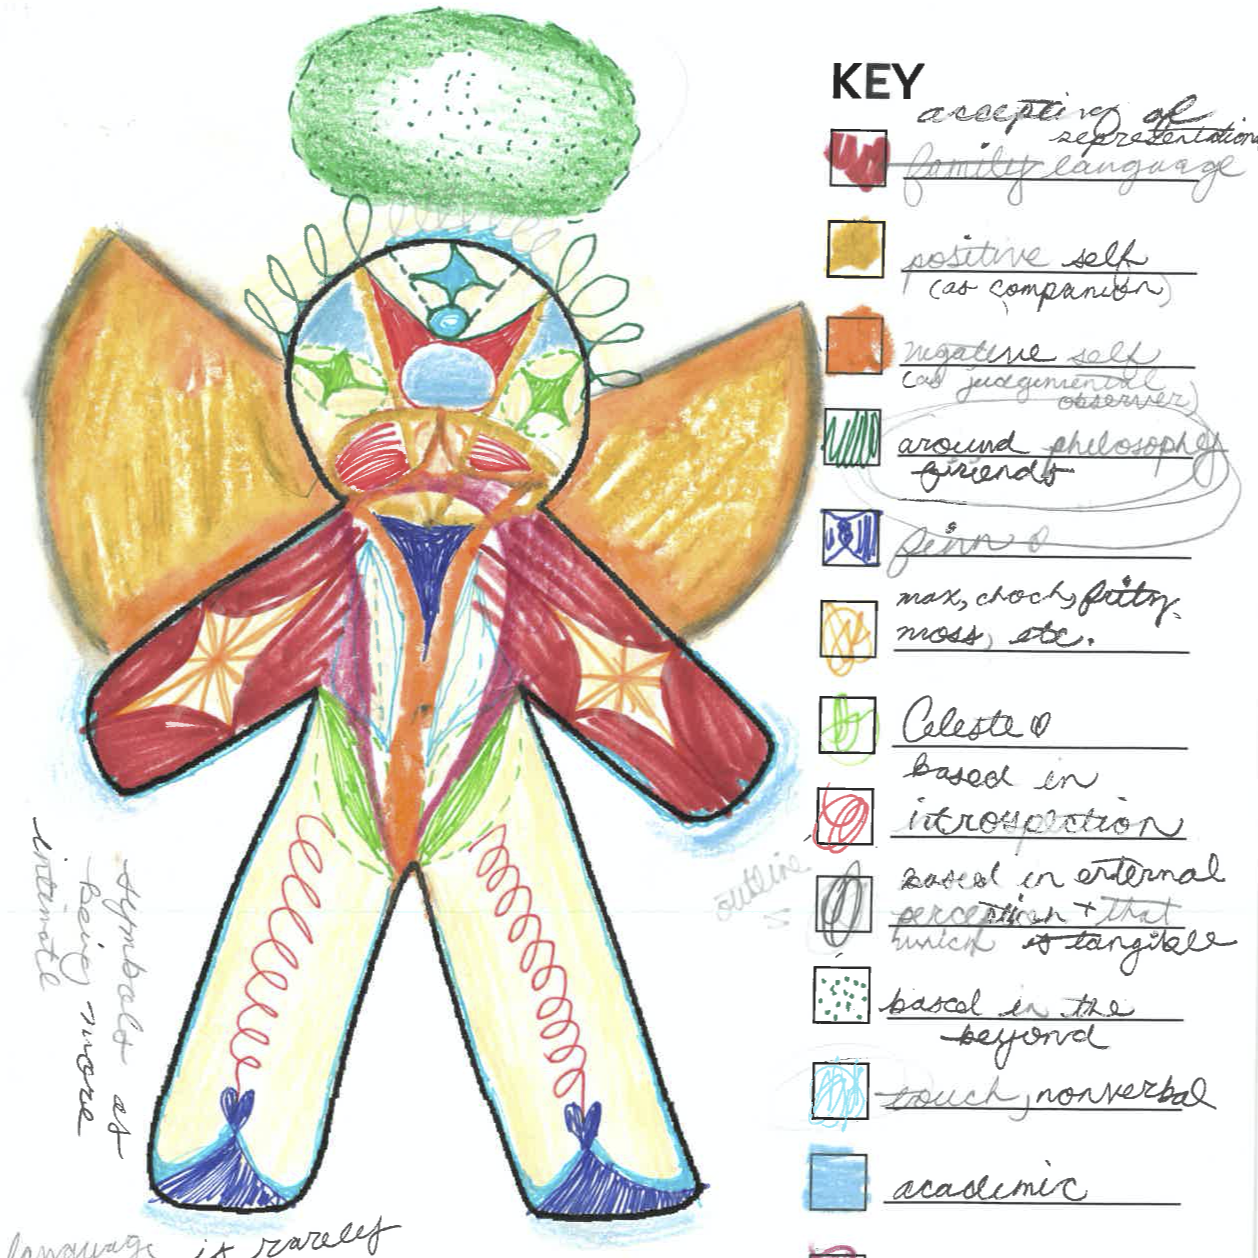 KEY
accepting of
representation
family language
positive self
(as companion)
negative self
(as judgemental
observer)
around philosophy
friends
finn
max, choch, fritz,
moss, etc.
Celeste
based in
introspection
based in external
perception + that
which is tangible
based in the
beyond
touch, nonverbal
academic
outline
symbols as
being more
intimate
language is rarely